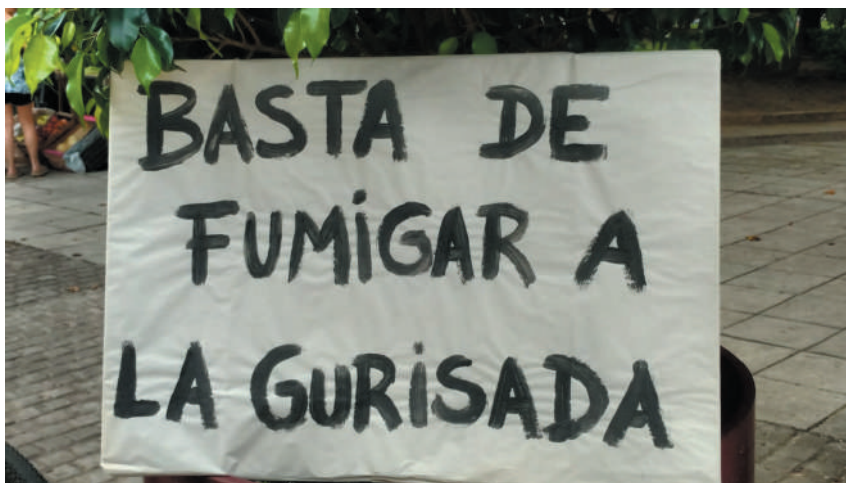 BASTA DE
FUMIGAR A
LA GURISADA